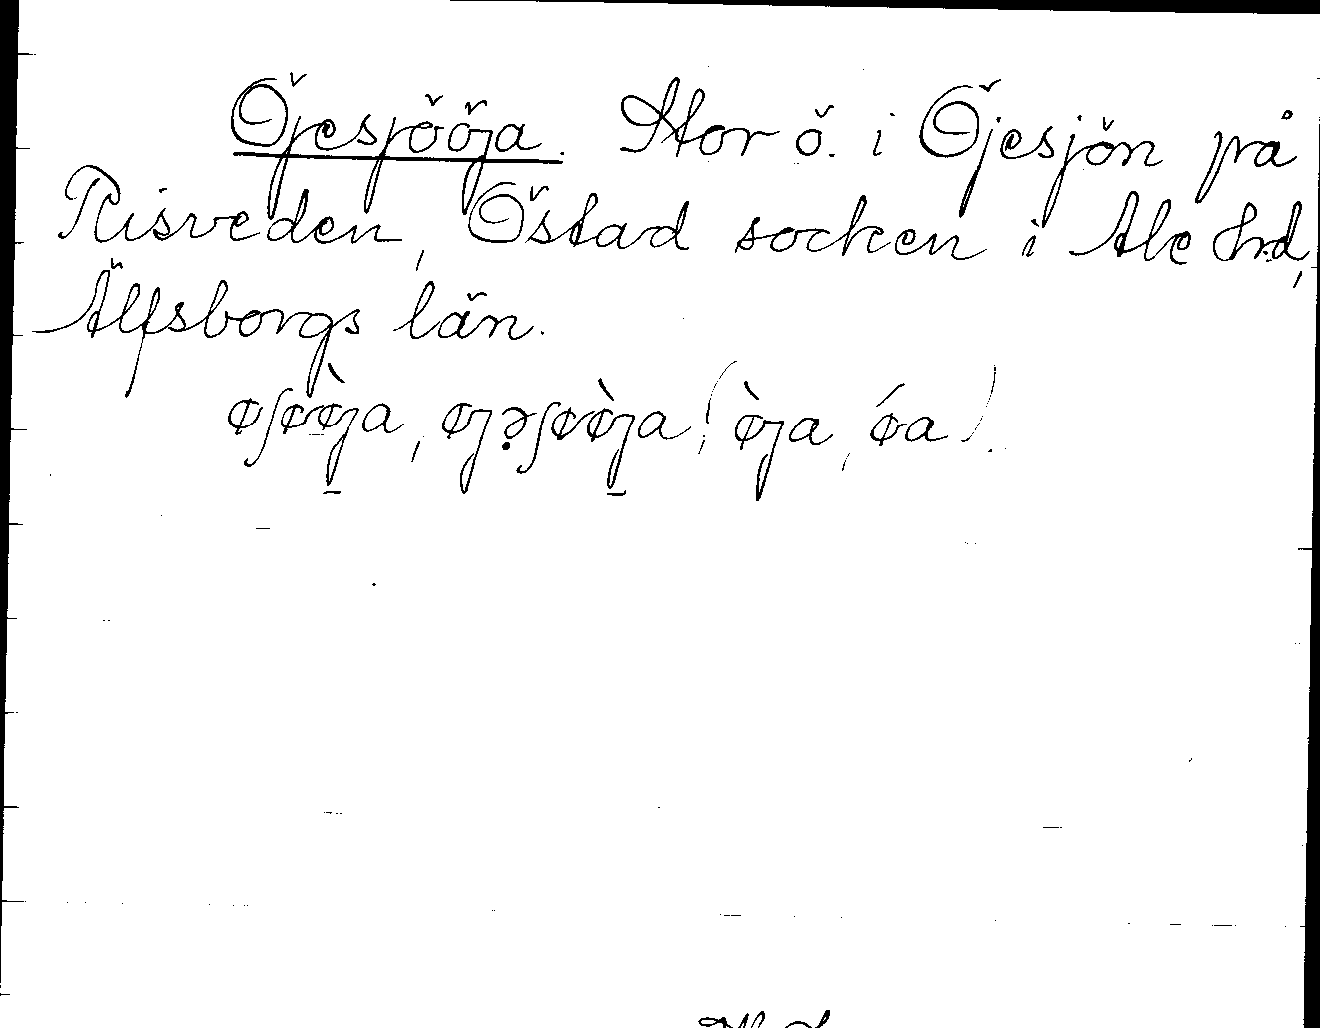 Öjesjööja. Stor ö. i Öjesjön på
Risveden, Östad socken i Ale hrd,
Älfsborgs län.
øʃøø̀ja, øjəʃøø̀ja (ø̀ja, ǿa).